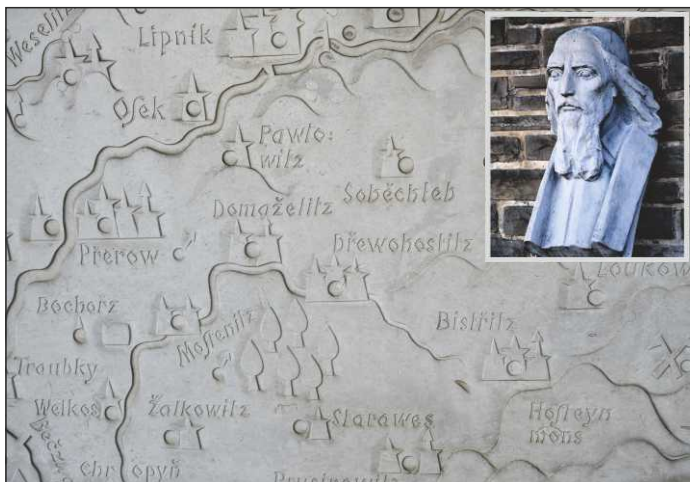 Weselitz
Lipnik
Oſek
Pawlo:
witz
Soběchleb
Domaželitz
Přerow
Dřewohostitz
Loukow
Bochorz
Moſtenitz
Bistřitz
Troubky
Welkos
Žalkowitz
Starawes
Hoſteyn
mons
Chropyň